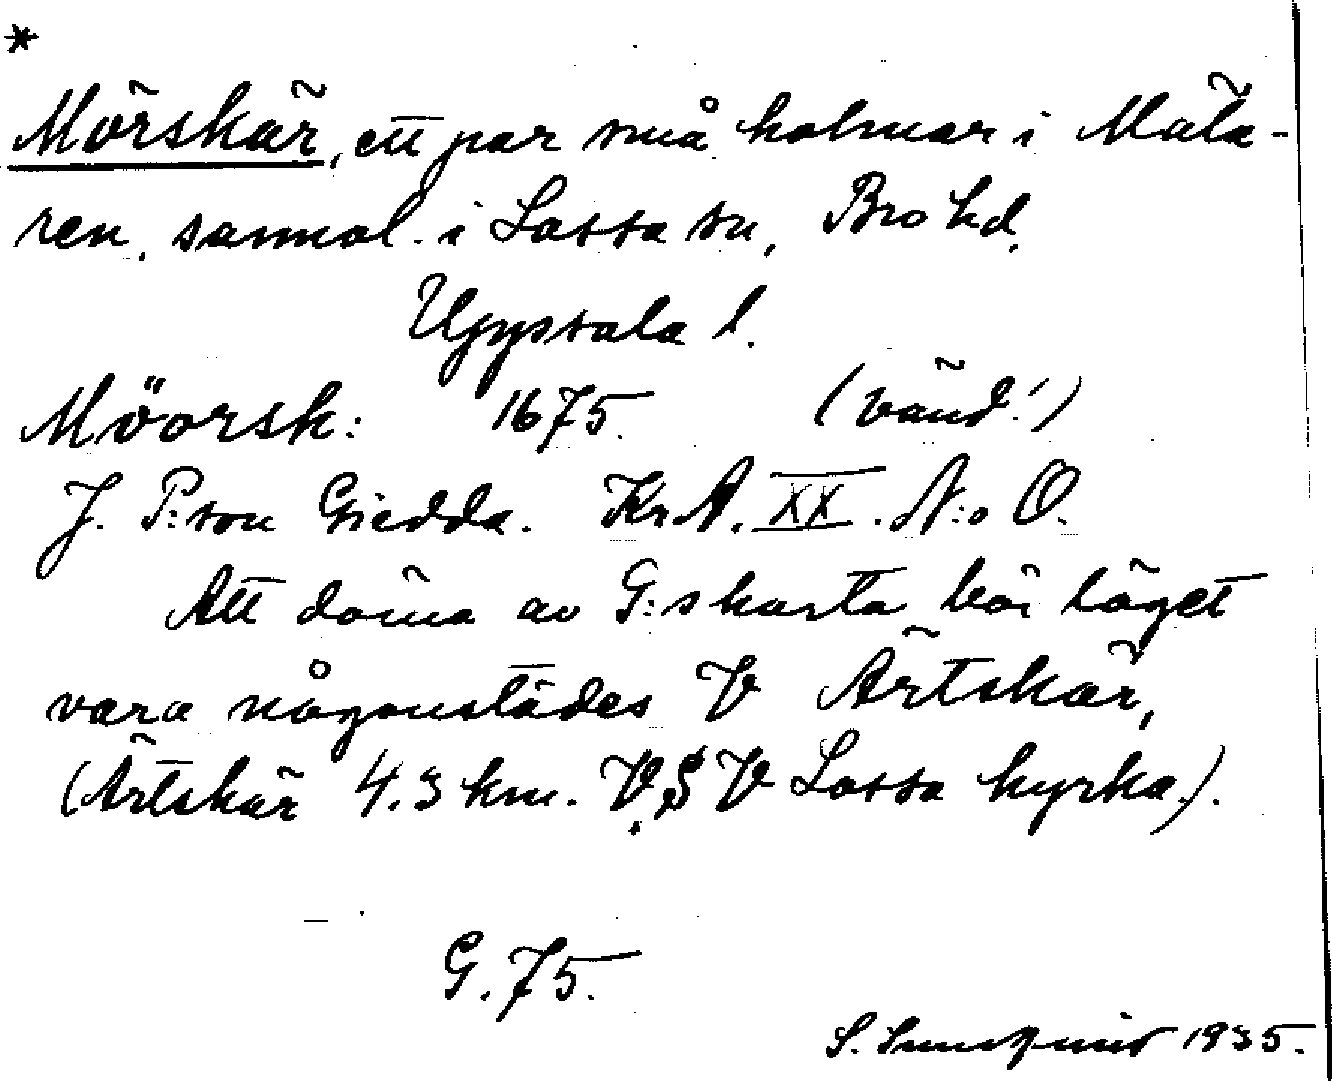 *
Mörskär, ett par små holmar i Mäla-
ren, sannol. i Lossa sn, Bro hd,
Uppsala l.
Möorsk: 1675. (vänd!)
J. P:son Giedda. KrA. XX. N:o O.
Att döma av G:s karta bör läget
vara någonstädes V Ärtskär,
(Ärtskär 4.3 km. V,S V Lossa kyrka.).
G. 75.
S. 1935.